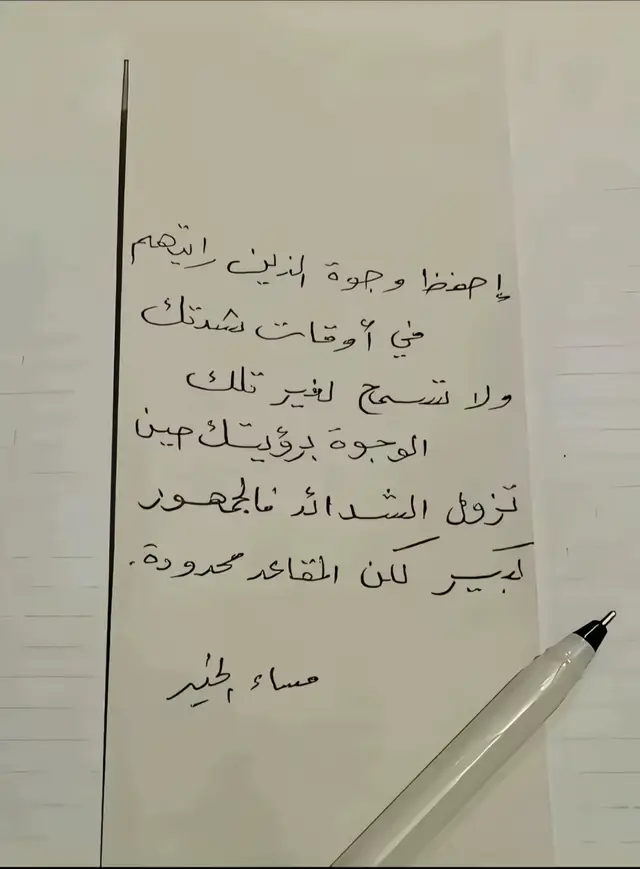 إحفظ وجوة الذين راتيهم
في أوقات شدتك
ولا تسمح لغير تلك
الوجوة برؤيتك حين
تزول الشدائد فالجمهور
كبير لكن المقاعد محدودة.
مساء الخير